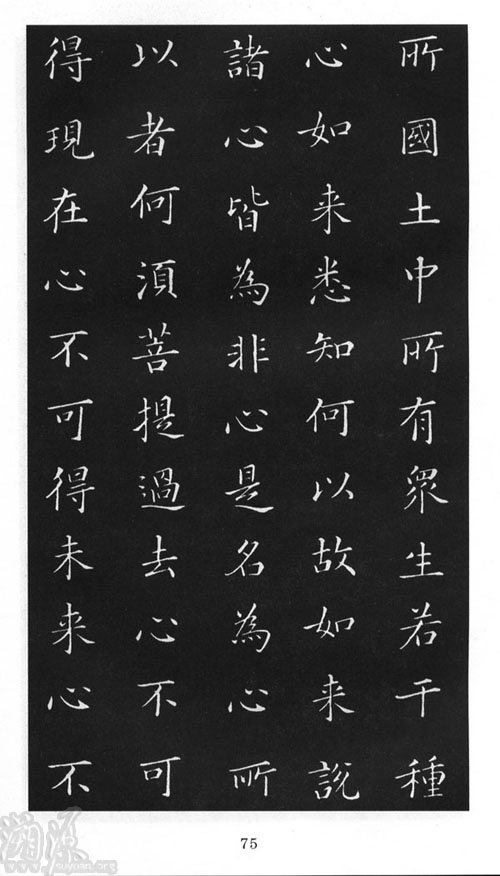 所國土中所有眾生若干種
心如来悉知何以故如来說
諸心皆為非心是名為心所
以者何湏菩提過去心不可
得現在心不可得未来心不
75
溯源
suyuan.org